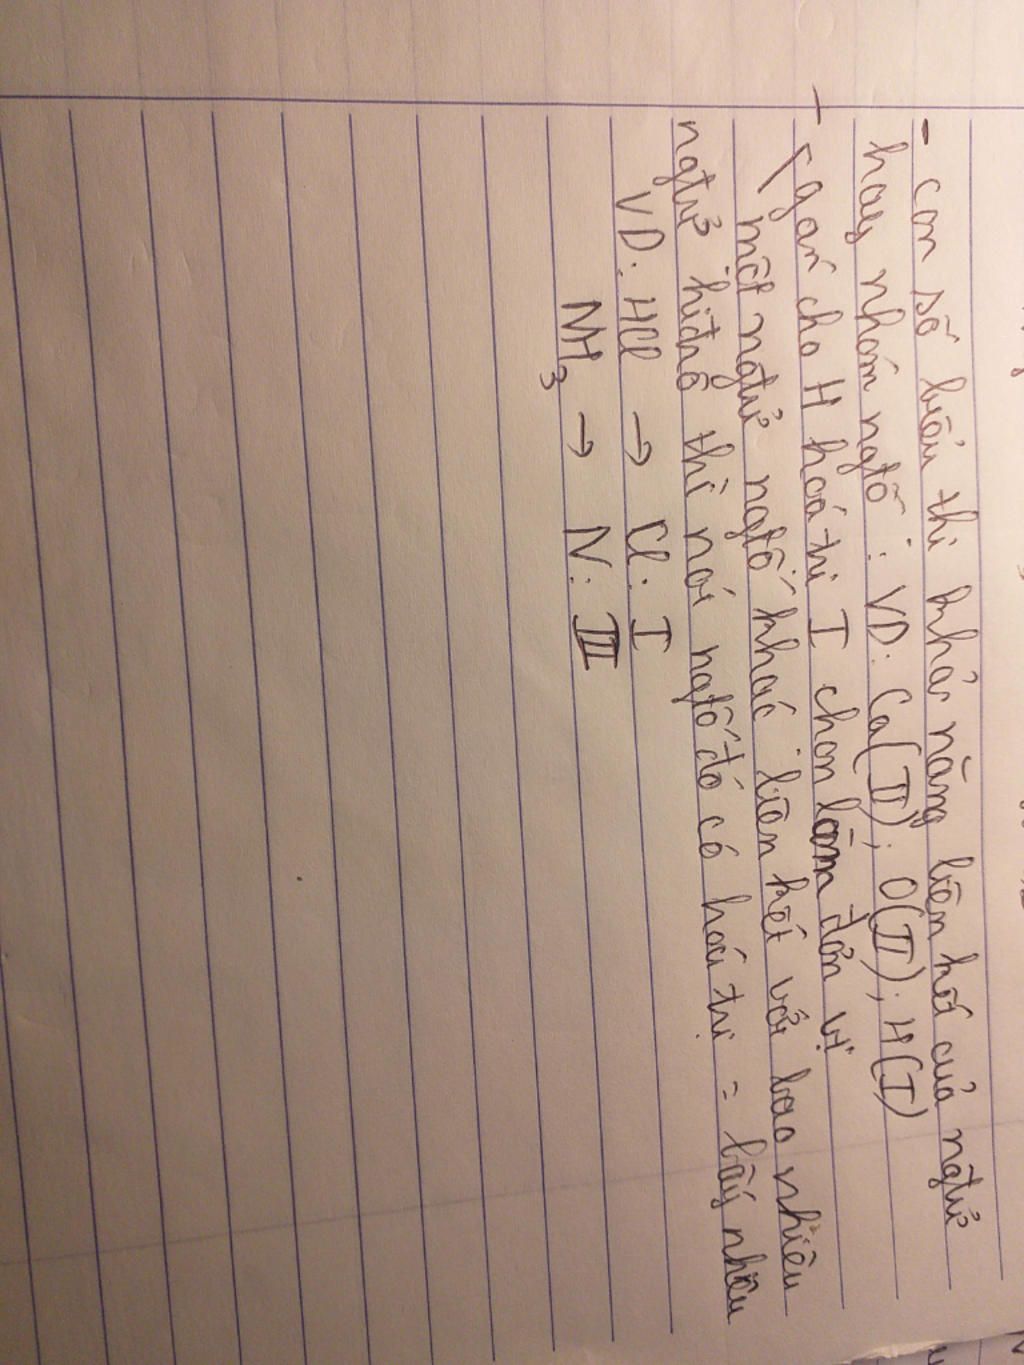 - con số biểu thị khả năng liên kết của ngtử
hay nhóm ngtố : VD: Ca(II); O(II); H(I)
- gán cho H hoá trị I chọn làm đơn vị
một ngtử ngtố khác liên kết với bao nhiêu
ngtử hiđrô thì nói ngtố đó có hoá trị = bấy nhiêu
VD: HCl → Cl: I
NH₃ → N: III